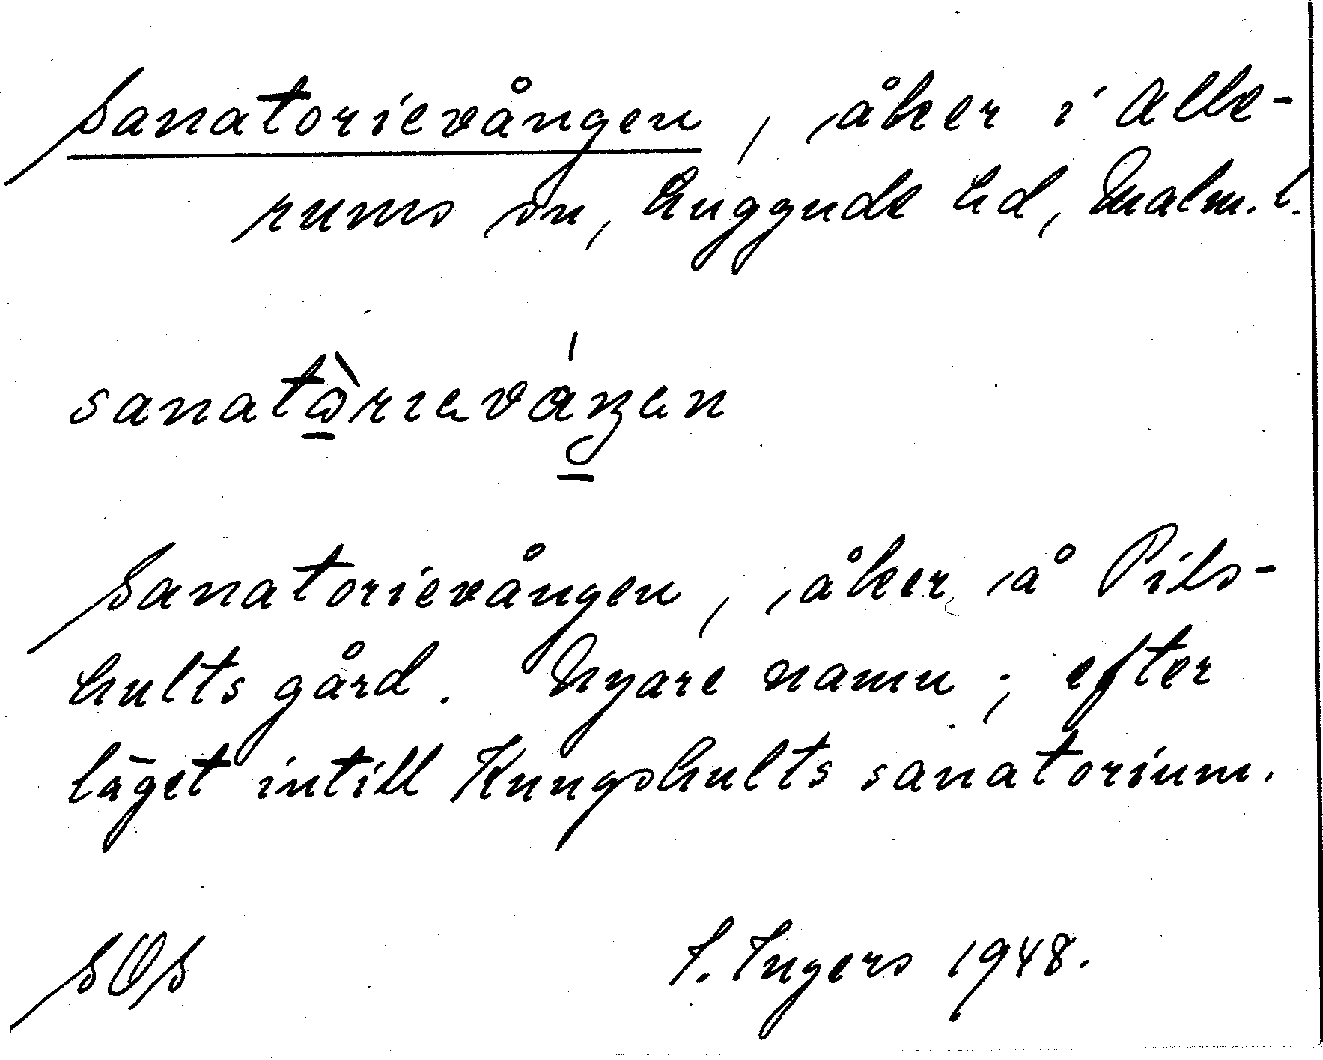 Sanatorievången, åker i Alle-
rums sn, Luggude hd, Malm. l.
Sanatorievången, åker å Pils-
hults gård. Nyare namn; efter
läget intill Kungshults sanatorium.
SOS I. Ingers 1948.